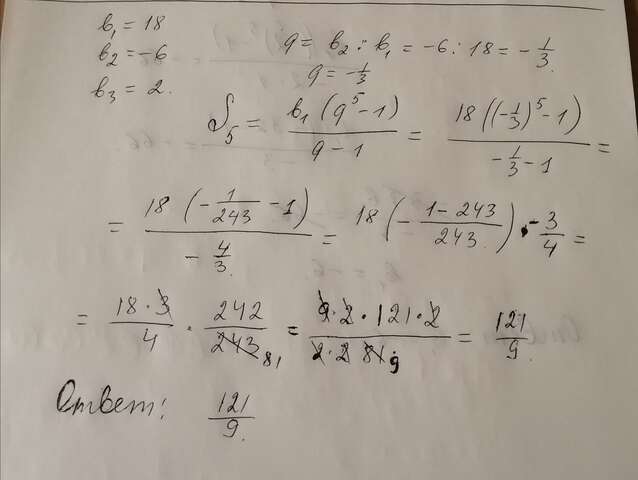 b₁ = 18
b₂ = -6 q = b₂ : b₁ = -6 : 18 = -1/3.
b₃ = 2. q = -1/3
S₅ = b₁(q⁵-1)/(q-1) = 18((-1/3)⁵-1)/(-1/3-1) =
= 18(-1/243-1)/(-4/3) = 18(-(1-243)/243.)·-3/4 =
= 18·3/4 · 242/243 81 = 9·2·121·2/2·2 81 9 = 121/9.
Ответ: 121/9.